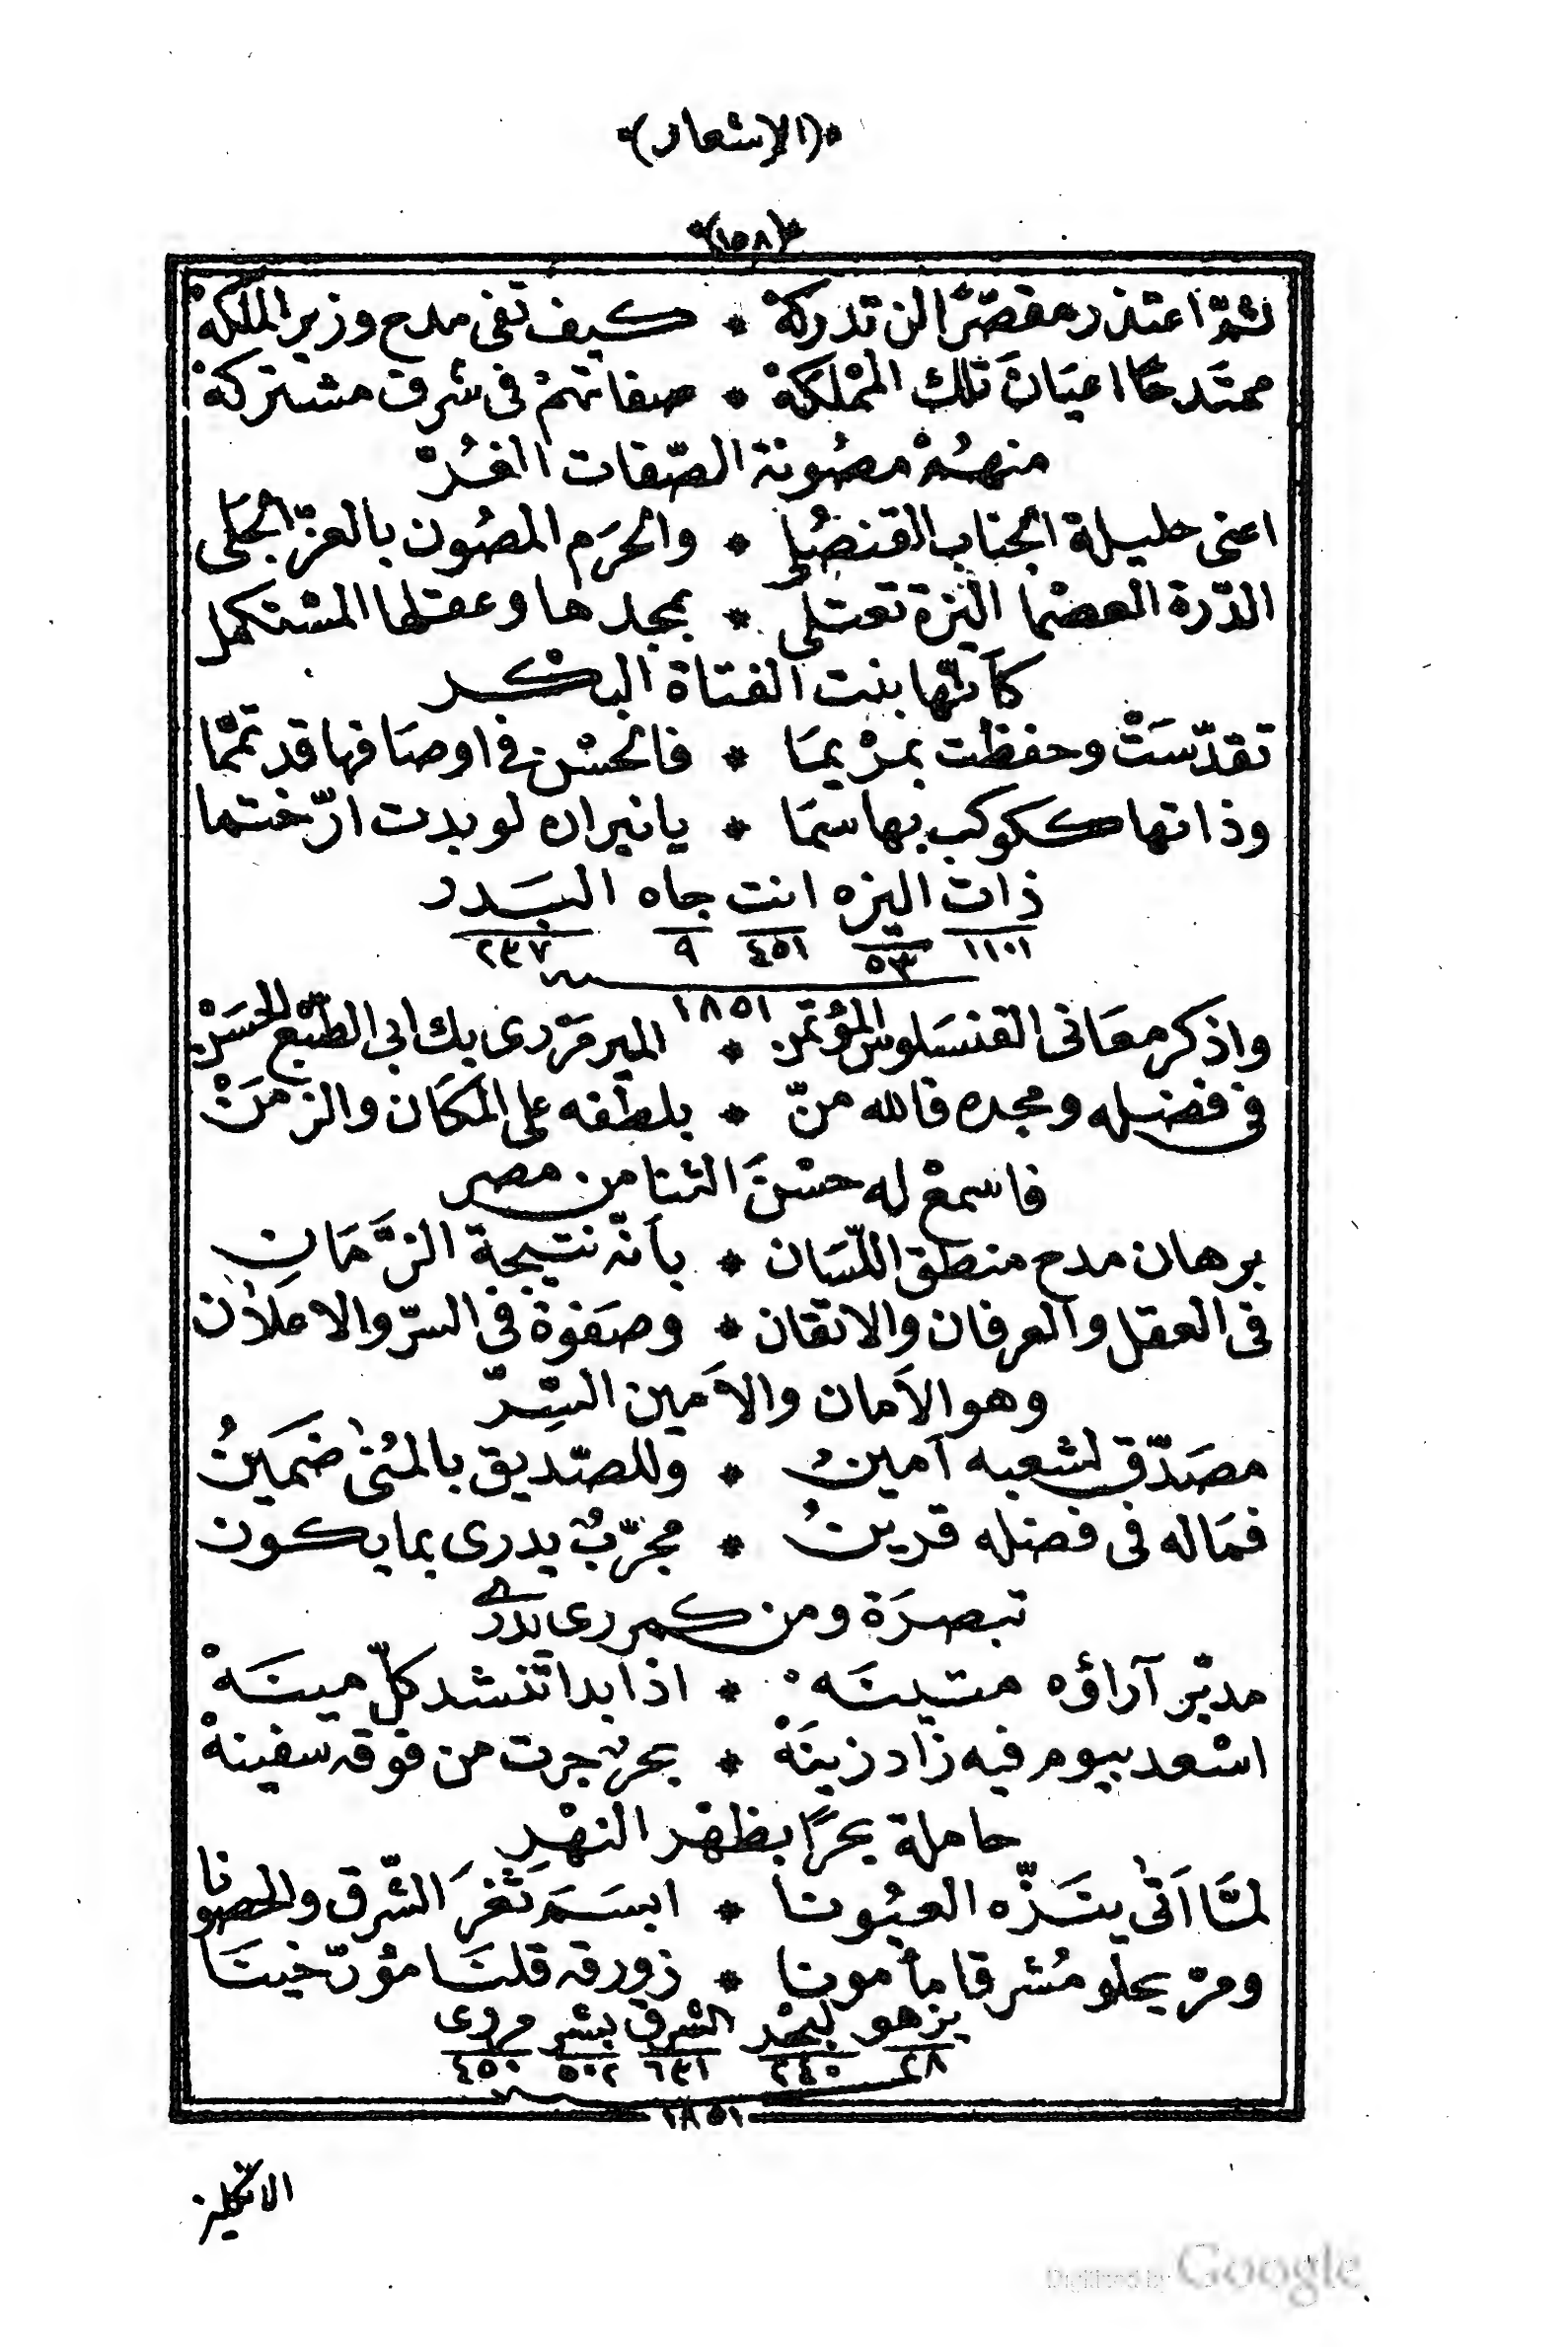 *(الاشعار)*
*(١٥٨)*
ثمّ اعتذر مقصّرًا لن تدركهْ * كيف تفى مدح وزير الملكهْ
ممتَدحًا اعيَانَ تلك المْملكهْ * صفاتهمْ فى شرف مشتركهْ
منهمُ مصُونة الصّفات الغُرّ
اعنى حليلة الجناب القنصُلى * والحرَم المصُون بالعزّ الجَلى
الدّرة العصْما اليزة تعتلى * بمجدها وعقلها المسْتكمل
كأنّها بنت الفتاة البكْر
تقدّسَتْ وحفظت بمرْيمَا * فالحسْن فى اوصَافها قد تمّما
وذاتها ككوكب بها سمَا * يا نيران لو بدت ارّختهَا
ذات اليزه انت جاه البَدر
١١٠١ ٥٣ ٤٥١ ٩ ٢٣٧
١٨٥١
واذكر معَانى القنسَلوس المؤتمن * المير مَرْدى بك ابى الطبْع الحسَنْ
فى فضله ومجده فالله منّ * بلطفه على المكَان والزمَنْ
فاسمعْ له حسْنَ الثنا من مصر
برهان مدح منطق اللّسَان * بأنّه نتيجة الزَّمَانِ
فى العقل والعرفان والاتقان * وصَفوة فى السرّ والاعلان
وهو الأمان والأمين السِّرّ
مصَدّق لشعبه امينُ * وللصّديق بالمُنى ضمَينُ
فمَاله فى فضله قرينُ * مجرّبٌ يدرى بما يكون
تبصرَة ومن كمردى يدرى
مدبّر آراؤه متينَهْ * اذا بدا تنشد كلّ مينَهْ
اسْعد بيوم فيه زاد زينَهْ * بحرٌ جرت من فوقه سفينهْ
حاملة بحرًا بظهْر النهْر
لمَّا اَتى ينَزّه العيُونا * ابسَمَ ثغرَ الشّرق والحصونا
ومرّ يجلو مُشرقا مأمونا * زورقه قلنَا مؤرّخينَا
يزهو لبحْر الشرق بشر مردى
٢٨ ٢٤٠ ٦٣١ ٥٠٢ ٤٥٠
١٨٥١
الانكليز
Digitized by Google